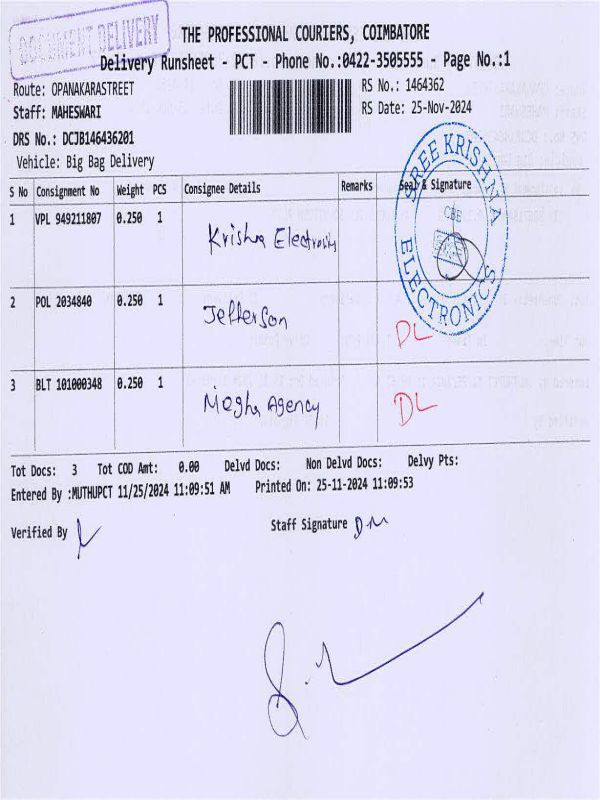 DOCUMENT DELIVERY
THE PROFESSIONAL COURIERS, COIMBATORE
Delivery Runsheet - PCT - Phone No.:0422-3505555 - Page No.:1
Route: OPANAKARASTREET
RS No.: 1464362
Staff: MAHESWARI
RS Date: 25-Nov-2024
DRS No.: DCJB146436201
Vehicle: Big Bag Delivery
S No Consignment No Weight PCS Consignee Details Remarks Seal & Signature
SREE KRISHNA
CBE
ELECTRONICS
1 VPL 949211807 0.250 1 Krishna Electronics
2 POL 2034840 0.250 1 Jefferson DL
3 BLT 101000348 0.250 1 Megha Agency DL
Tot Docs: 3 Tot COD Amt: 0.00 Delvd Docs: Non Delvd Docs: Delvy Pts:
Entered By :MUTHUPCT 11/25/2024 11:09:51 AM Printed On: 25-11-2024 11:09:53
Verified By
Staff Signature